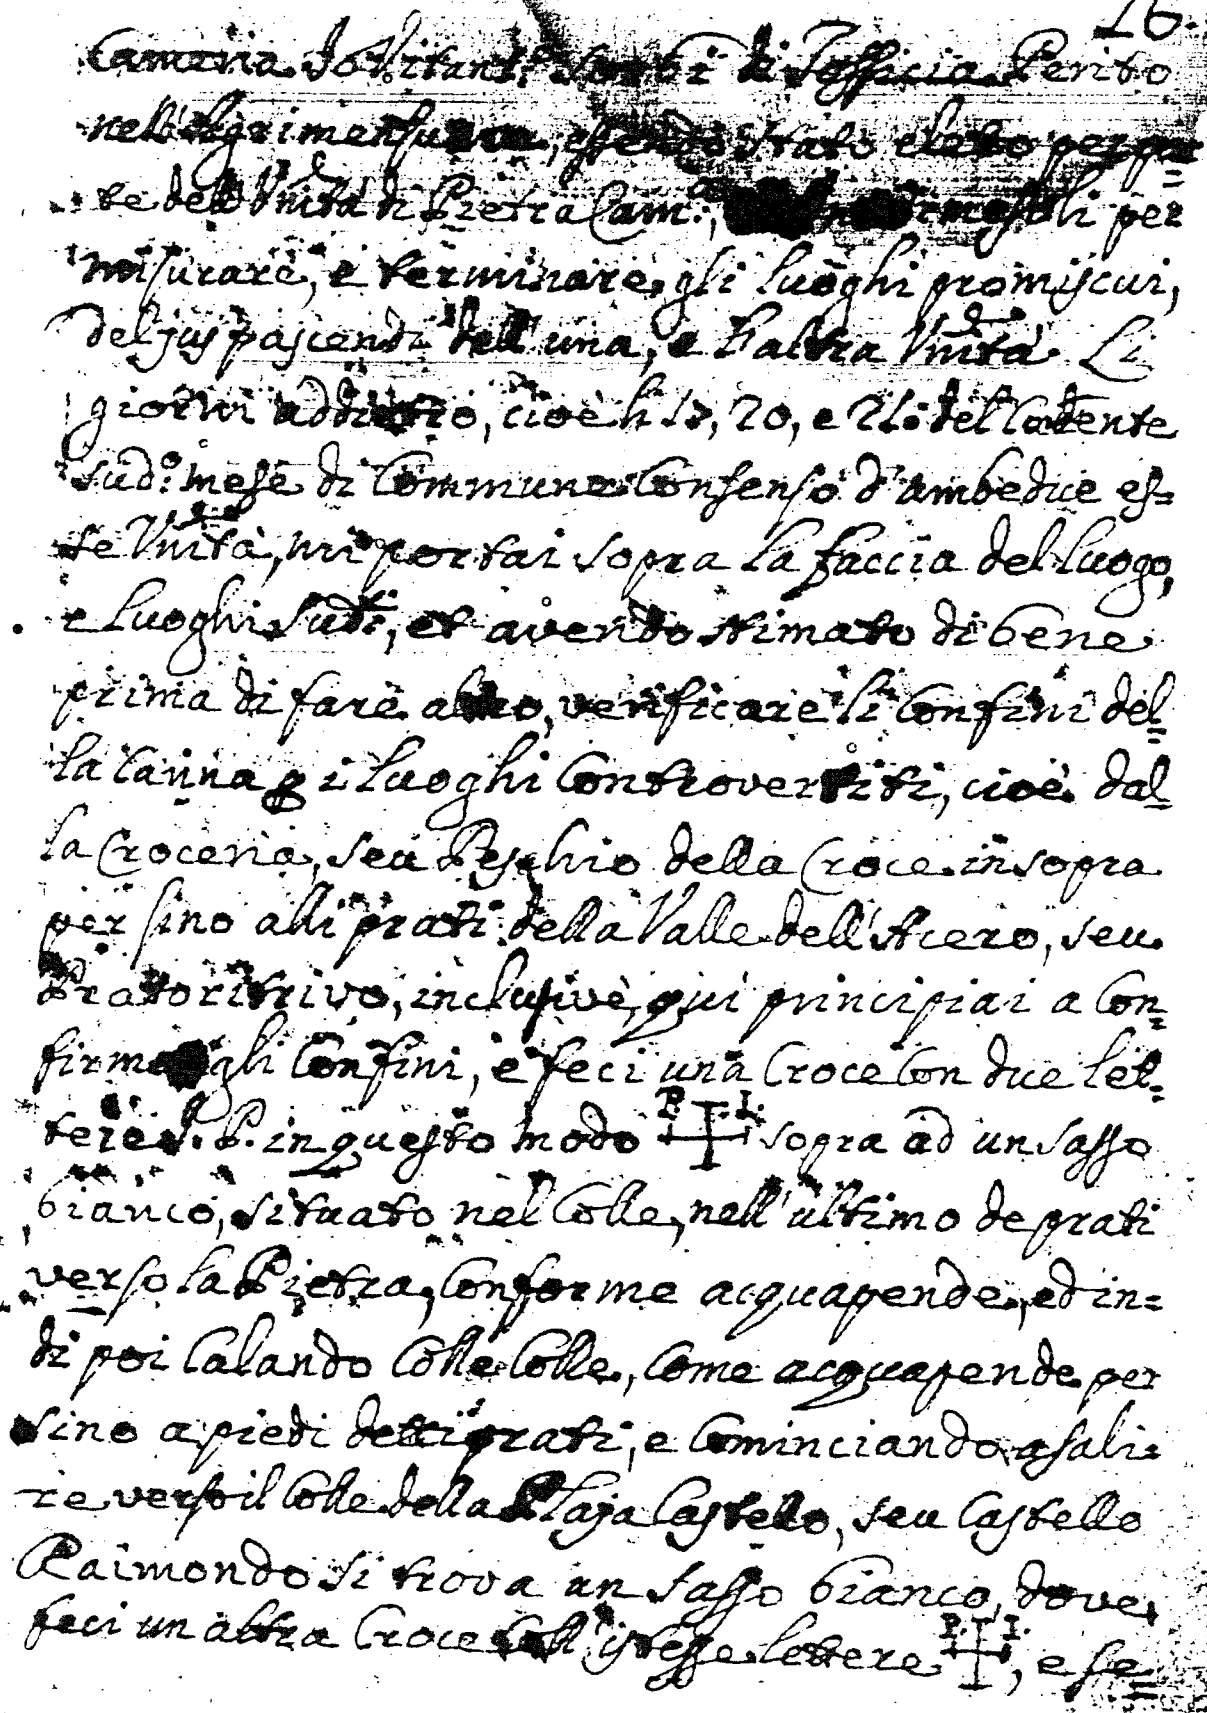 16.
Cameria dohitant: di Tossicia Perito
nell'Agrimensura, essendo stato eletto per par=
te dell'Vnità di Pietra Cam:a, per
misurare, e terminare, gli luoghi promiscui,
del jus pascendi dell'una, e l'altra Vnità Li
giorni addietro, cioè li 17, 20, e 21: del Cadente
sud:o mese di Commune Consenso d'ambedue es=
se Vnità, mi portai sopra la faccia del luogo,
e luoghi sudi, et avendo stimato di bene
prima di fare altro, verificare li Confini del=
la Canna p i luoghi Controvertiti, cioè dal=
la Croceria, seu Peschio della Croce in sopra
per sino alli prati della Valle dell'Acero, seu
Pratoritrivo, inclusivè, qui principiai a Con=
firmare gli Confini, e feci una Croce Con due let=
tere I. P. in questo modo P. I. sopra ad un sasso
bianco, situato nel Colle, nell'ultimo de prati
verso la Pietra, Conforme acquapende, ed in=
di poi Calando Colle Colle, Come acquapende per
sino a piedi detti prati, e Cominciando a sali=
re verso il Colle della Plaja Castello, seu Castello
Raimondo si trova un sasso bianco, dove
feci un altra Croce coll'istesse lettere P. I., e se=